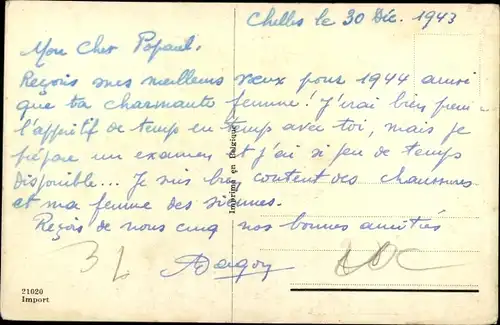 Chelles le 30 Déc. 1943
Mon Cher Popaul.
Reçois mes meilleurs vœux pour 1944 ainsi
que ta charmante femme! J'irai bien
l'apéritif de temps en temps avec toi, mais je
prépare un examen et j'ai si peu de temps
disponible... Je suis bien content des chaussures
et ma femme des siennes.
Reçois de nous cinq nos bonnes amitiés
Imprimé en Belgique
21020
Import